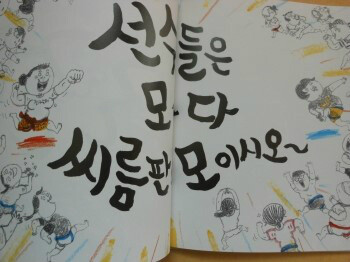 선수들은
모두 다
씨름판 모이시오~